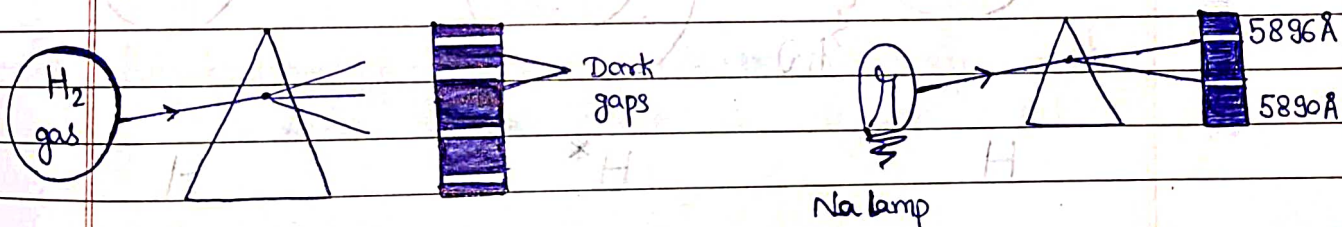 H₂
gas
Dark
gaps
Na lamp
5896Å
5890Å